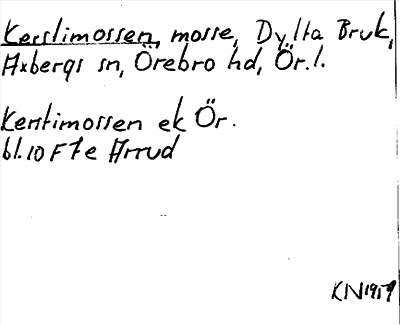 Kerstimossen, mosse, Dylta Bruk,
Axbergs sn, Örebro hd, Ör.l.
Kerstimossen ek Ör.
bl.10 F 7e Arrud
KN1959